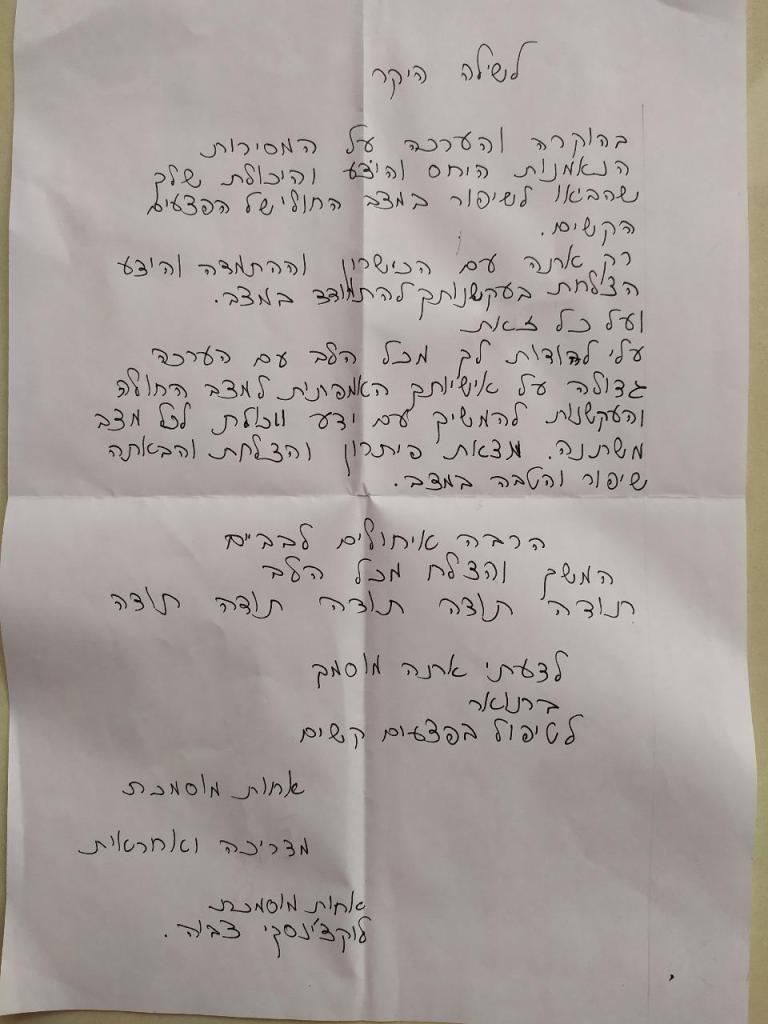 לשילה היקר
בהוקרה והערכה על המסירות
הנאמנות היחס והידע והיכולת שלך
שהבאו לשיפור במצב החולי של הפצעים
הקשים.
רק אתה עם הכישרון וההתמדה והידע
הצלחת בעקשנותך להתמודד במצב.
ועל כל זאת
עלי להודות לך מכל הלב עם הערכה
גדולה על אישיותך האמפתית למצב החולה
והעקשנות להמשיך עם ידע ויכולת לכל מצב
משתנה. מצאת פיתרון והצלחת והבאתה
שיפור והטבה במצב.
הרבה איחולים לבביים
המשך והצלח מכל הלב
תודה תודה תודה תודה תודה
לדעתי אתה מוסמך
לטיפול בפצעים קשים
אחות מוסמכת
מדריכה ואחראית
אחות מוסמכת
לוקצ'ינסקי צביה.